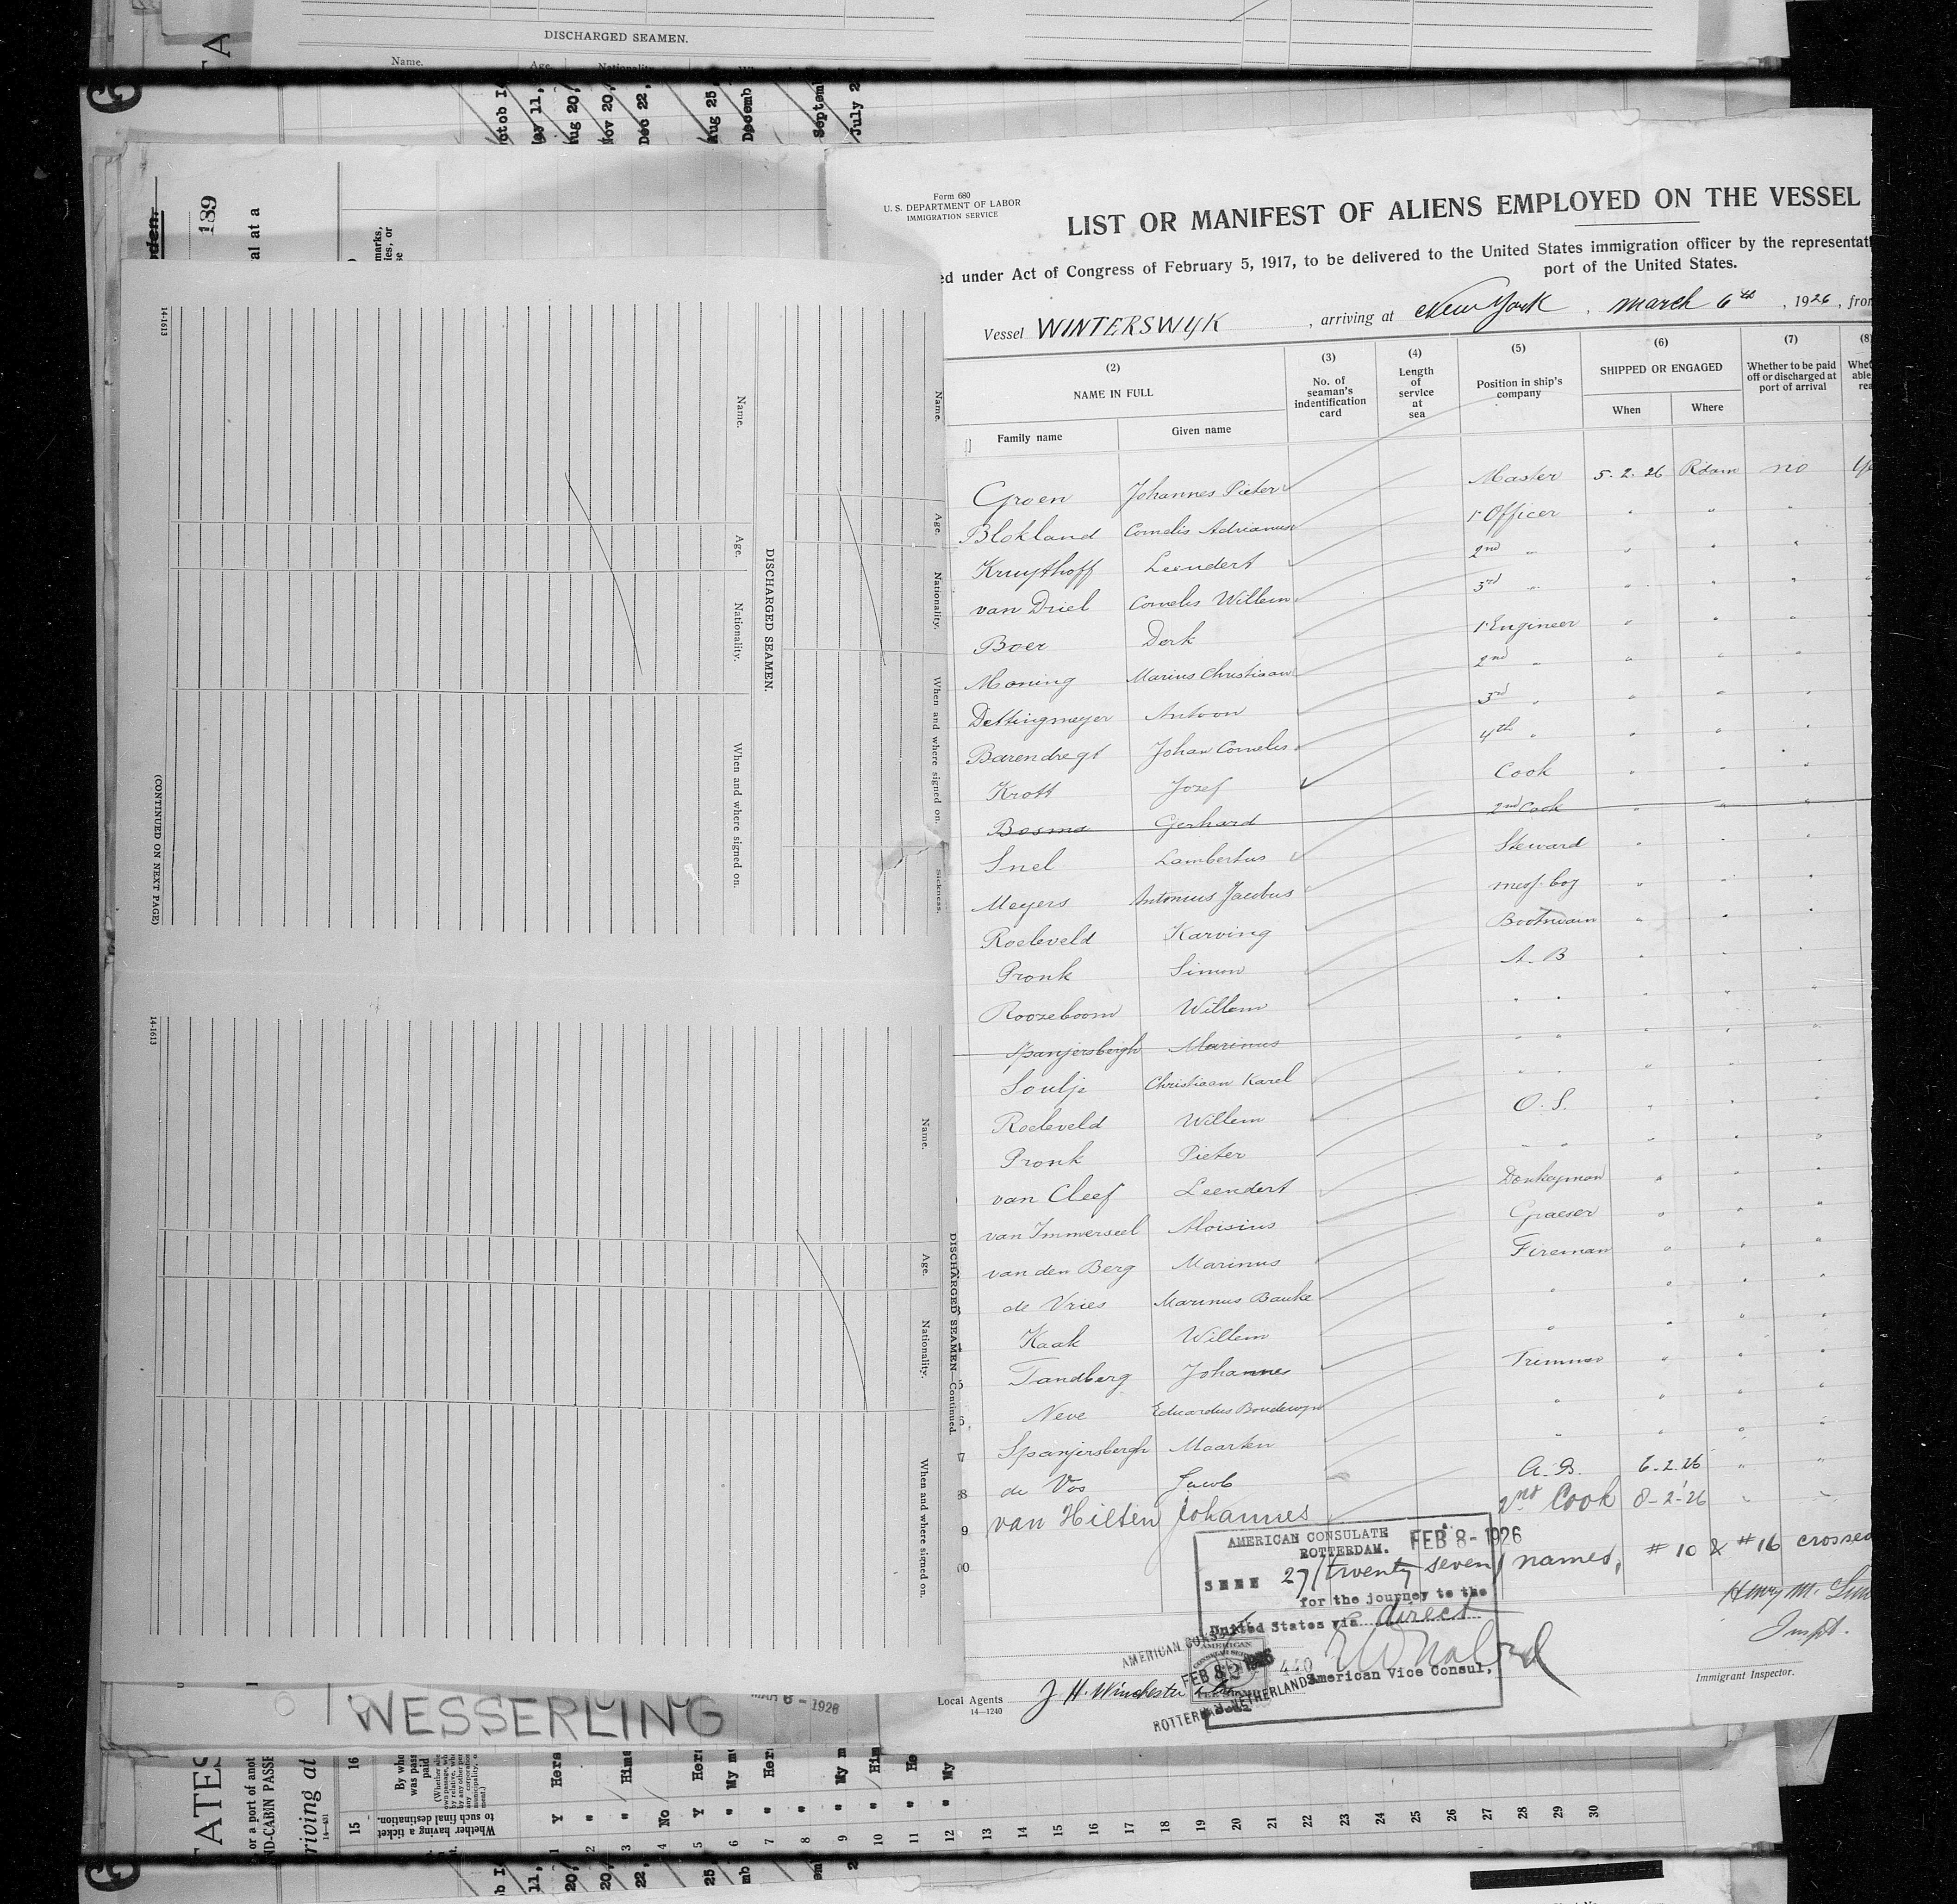 DISCHARGED SEAMEN.
Name. Age. Nationality.
ctob 1
ay 11,
ug 20,
Nov 20,
Dec 22,
Aug 25
Decemb
Septem
July 2
189
al at a
marks,
ies, or
14-1613
Name. Age. Nationality. When and where signed on. Sickness.
DISCHARGED SEAMEN.
Name. Age. Nationality. When and where signed on.
(CONTINUED ON NEXT PAGE)
14-1613
DISCHARGED SEAMEN—Continued.
Name. Age. Nationality. When and where signed on.
Form 680
U. S. DEPARTMENT OF LABOR
IMMIGRATION SERVICE
LIST OR MANIFEST OF ALIENS EMPLOYED ON THE VESSEL
ed under Act of Congress of February 5, 1917, to be delivered to the United States immigration officer by the representati
port of the United States.
Vessel WINTERSWYK, arriving at New York, March 6th, 1926, from
(2) (3) (4) (5) (6) (7) (8)
NAME IN FULL
No. of seaman's indentification card
Length of service at sea
Position in ship's company
SHIPPED OR ENGAGED
Whether to be paid off or discharged at port of arrival
Family name Given name When Where
Groen Johannes Pieter Master 5.2.26 Rdam no
Blokland Cornelis Adrianus 1 Officer " " "
Kruythoff Leendert 2nd " " " "
van Driel Cornelis Willem 3rd " " " "
Boer Derk 1 Engineer " " "
Moning Marius Christiaan 2nd " " " "
Dettingmeyer Antoon 3rd " " " "
Barendregt Johan Cornelis 4th " " " "
Krott Jozef Cook " " "
Bosma Gerhard 2nd Cook " " "
Snel Lambertus Steward " " "
Meyers Antonius Jacobus mess boy " " "
Roeleveld Karving Bootswain " " "
Pronk Simon A. B " " "
Roozeboom Willem " " " " "
Spanjersbergh Marinus " " " " "
Soulje Christiaan Karel " " " " "
Roeleveld Willem O. S. " " "
Pronk Pieter " " " " "
van Cleef Leendert Donkeyman " " "
van Immerseel Aloisius Greaser " " "
van den Berg Marinus Fireman " " "
de Vries Marinus Bauke " " " "
Kaak Willem " " " "
Tandberg Johannes Trimmer " " "
Neve Eduardus Boudewyn " " " "
Spanjersbergh Maarten " " " "
de Vos Jacob A. B. 6.2.26 " "
van Hilten Johannes 2nd Cook 8-2-'26 " "
AMERICAN CONSULATE
ROTTERDAM. FEB 8 - 1926
SEEN 27/twenty seven/ names, #10 & #16 crossed
for the journey to the
United States via direct
American Vice Consul,
Henry M.
Inspt.
Immigrant Inspector.
FEB 8 1926
ROTTERDAM NETHERLANDS
440
Local Agents J H Winchester
14—1240
WESSERLING
MAR 6 - 1926
TATES
or a port of anot
ND-CABIN PASSE
riving at
14-431
15 16
Whether having a ticket to such final destination.
By who was pass paid
Y " " No Y " " " " " " "
Hers Hims Hers My m Her My m Him He My
1 2 3 4 5 6 7 8 9 10 11 12 13 14 15 16 17 18 19 20 21 22 23 24 25 26 27 28 29 30